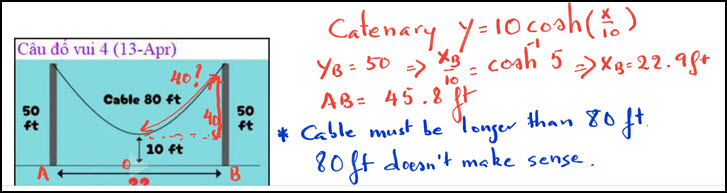 Câu đố vui 4 (13-Apr)
50 ft
Cable 80 ft
40?
40
50 ft
10 ft
A
0
B
??
Catenary y = 10 cosh(x/10)
y_B = 50 => x_B/10 = cosh⁻¹ 5 => x_B = 22.9 ft
AB = 45.8 ft
* Cable must be longer than 80 ft.
80 ft doesn't make sense.